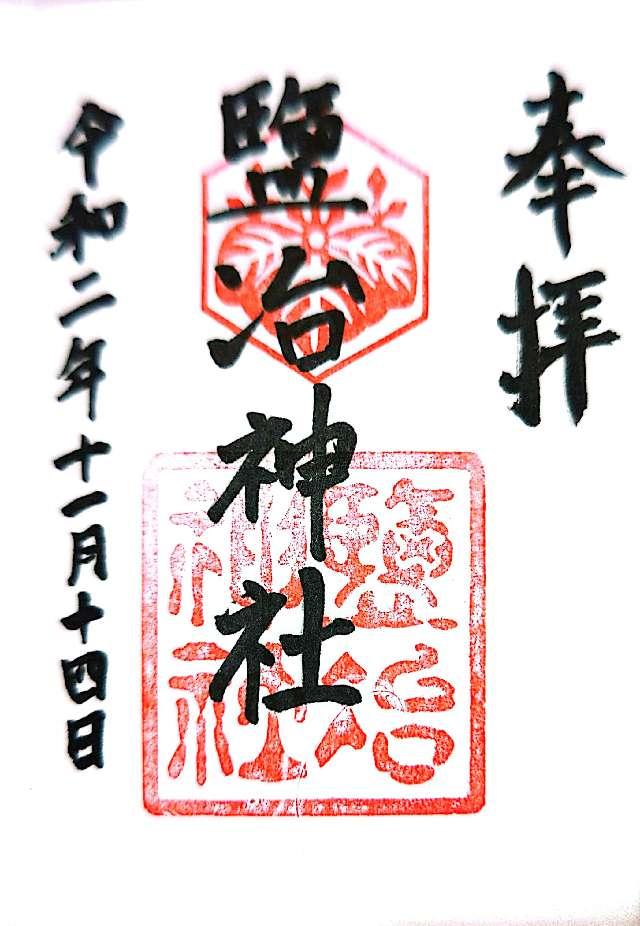 奉拝
鹽冶神社
令和二年十一月十四日
鹽冶
神社